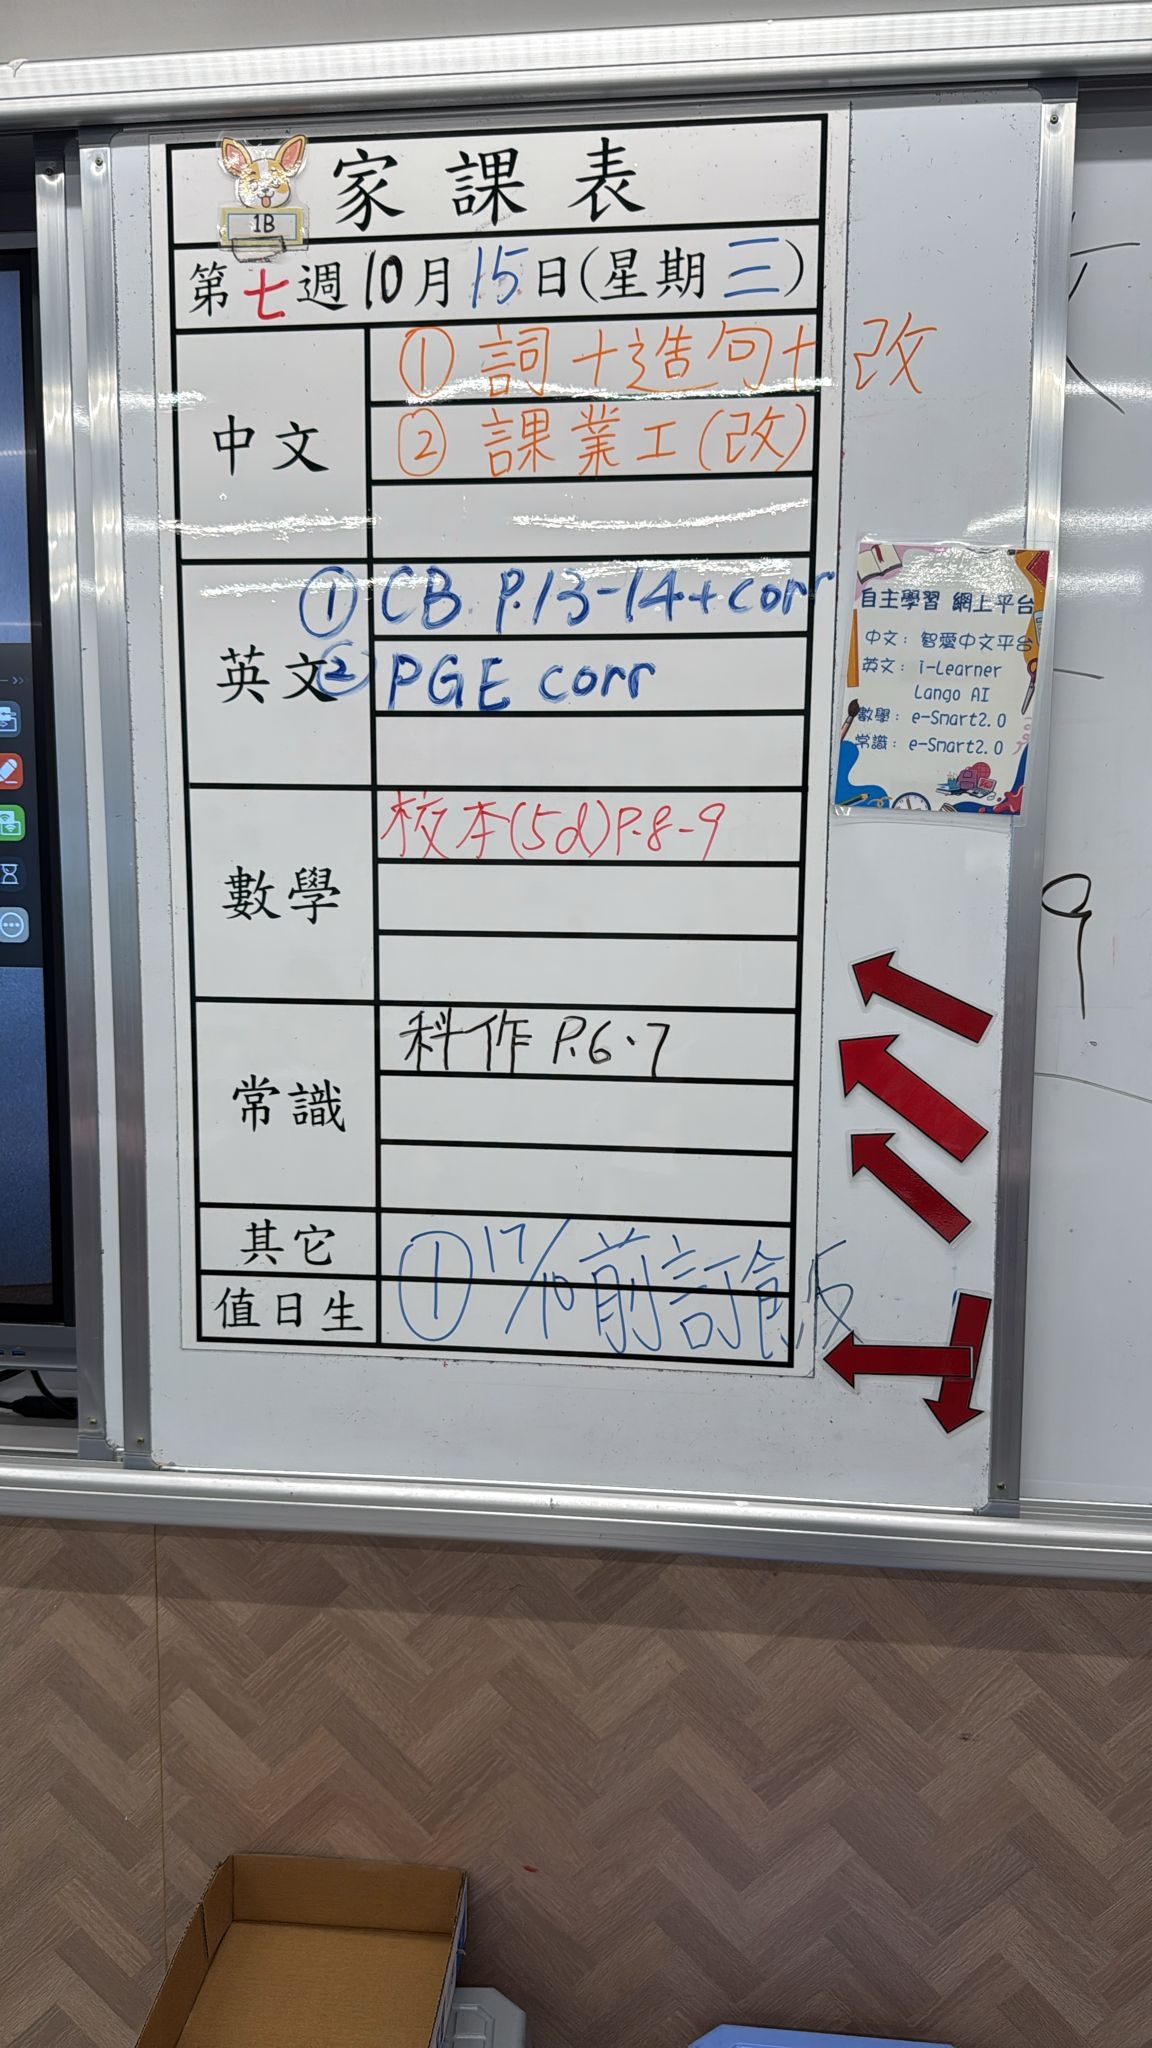 家課表
1B
第七週10月15日(星期三)
中文
① 詞+造句+改
② 課業工(改)
英文
① CB P.13-14+corr
② PGE corr
數學
校本(5d)P.8-9
常識
科作 P.6、7
其它
① 17/10前訂飯
值日生
自主學習 網上平台
中文：智愛中文平台
英文：i-Learner
Lango AI
數學：e-Smart2.0
常識：e-Smart2.0
9